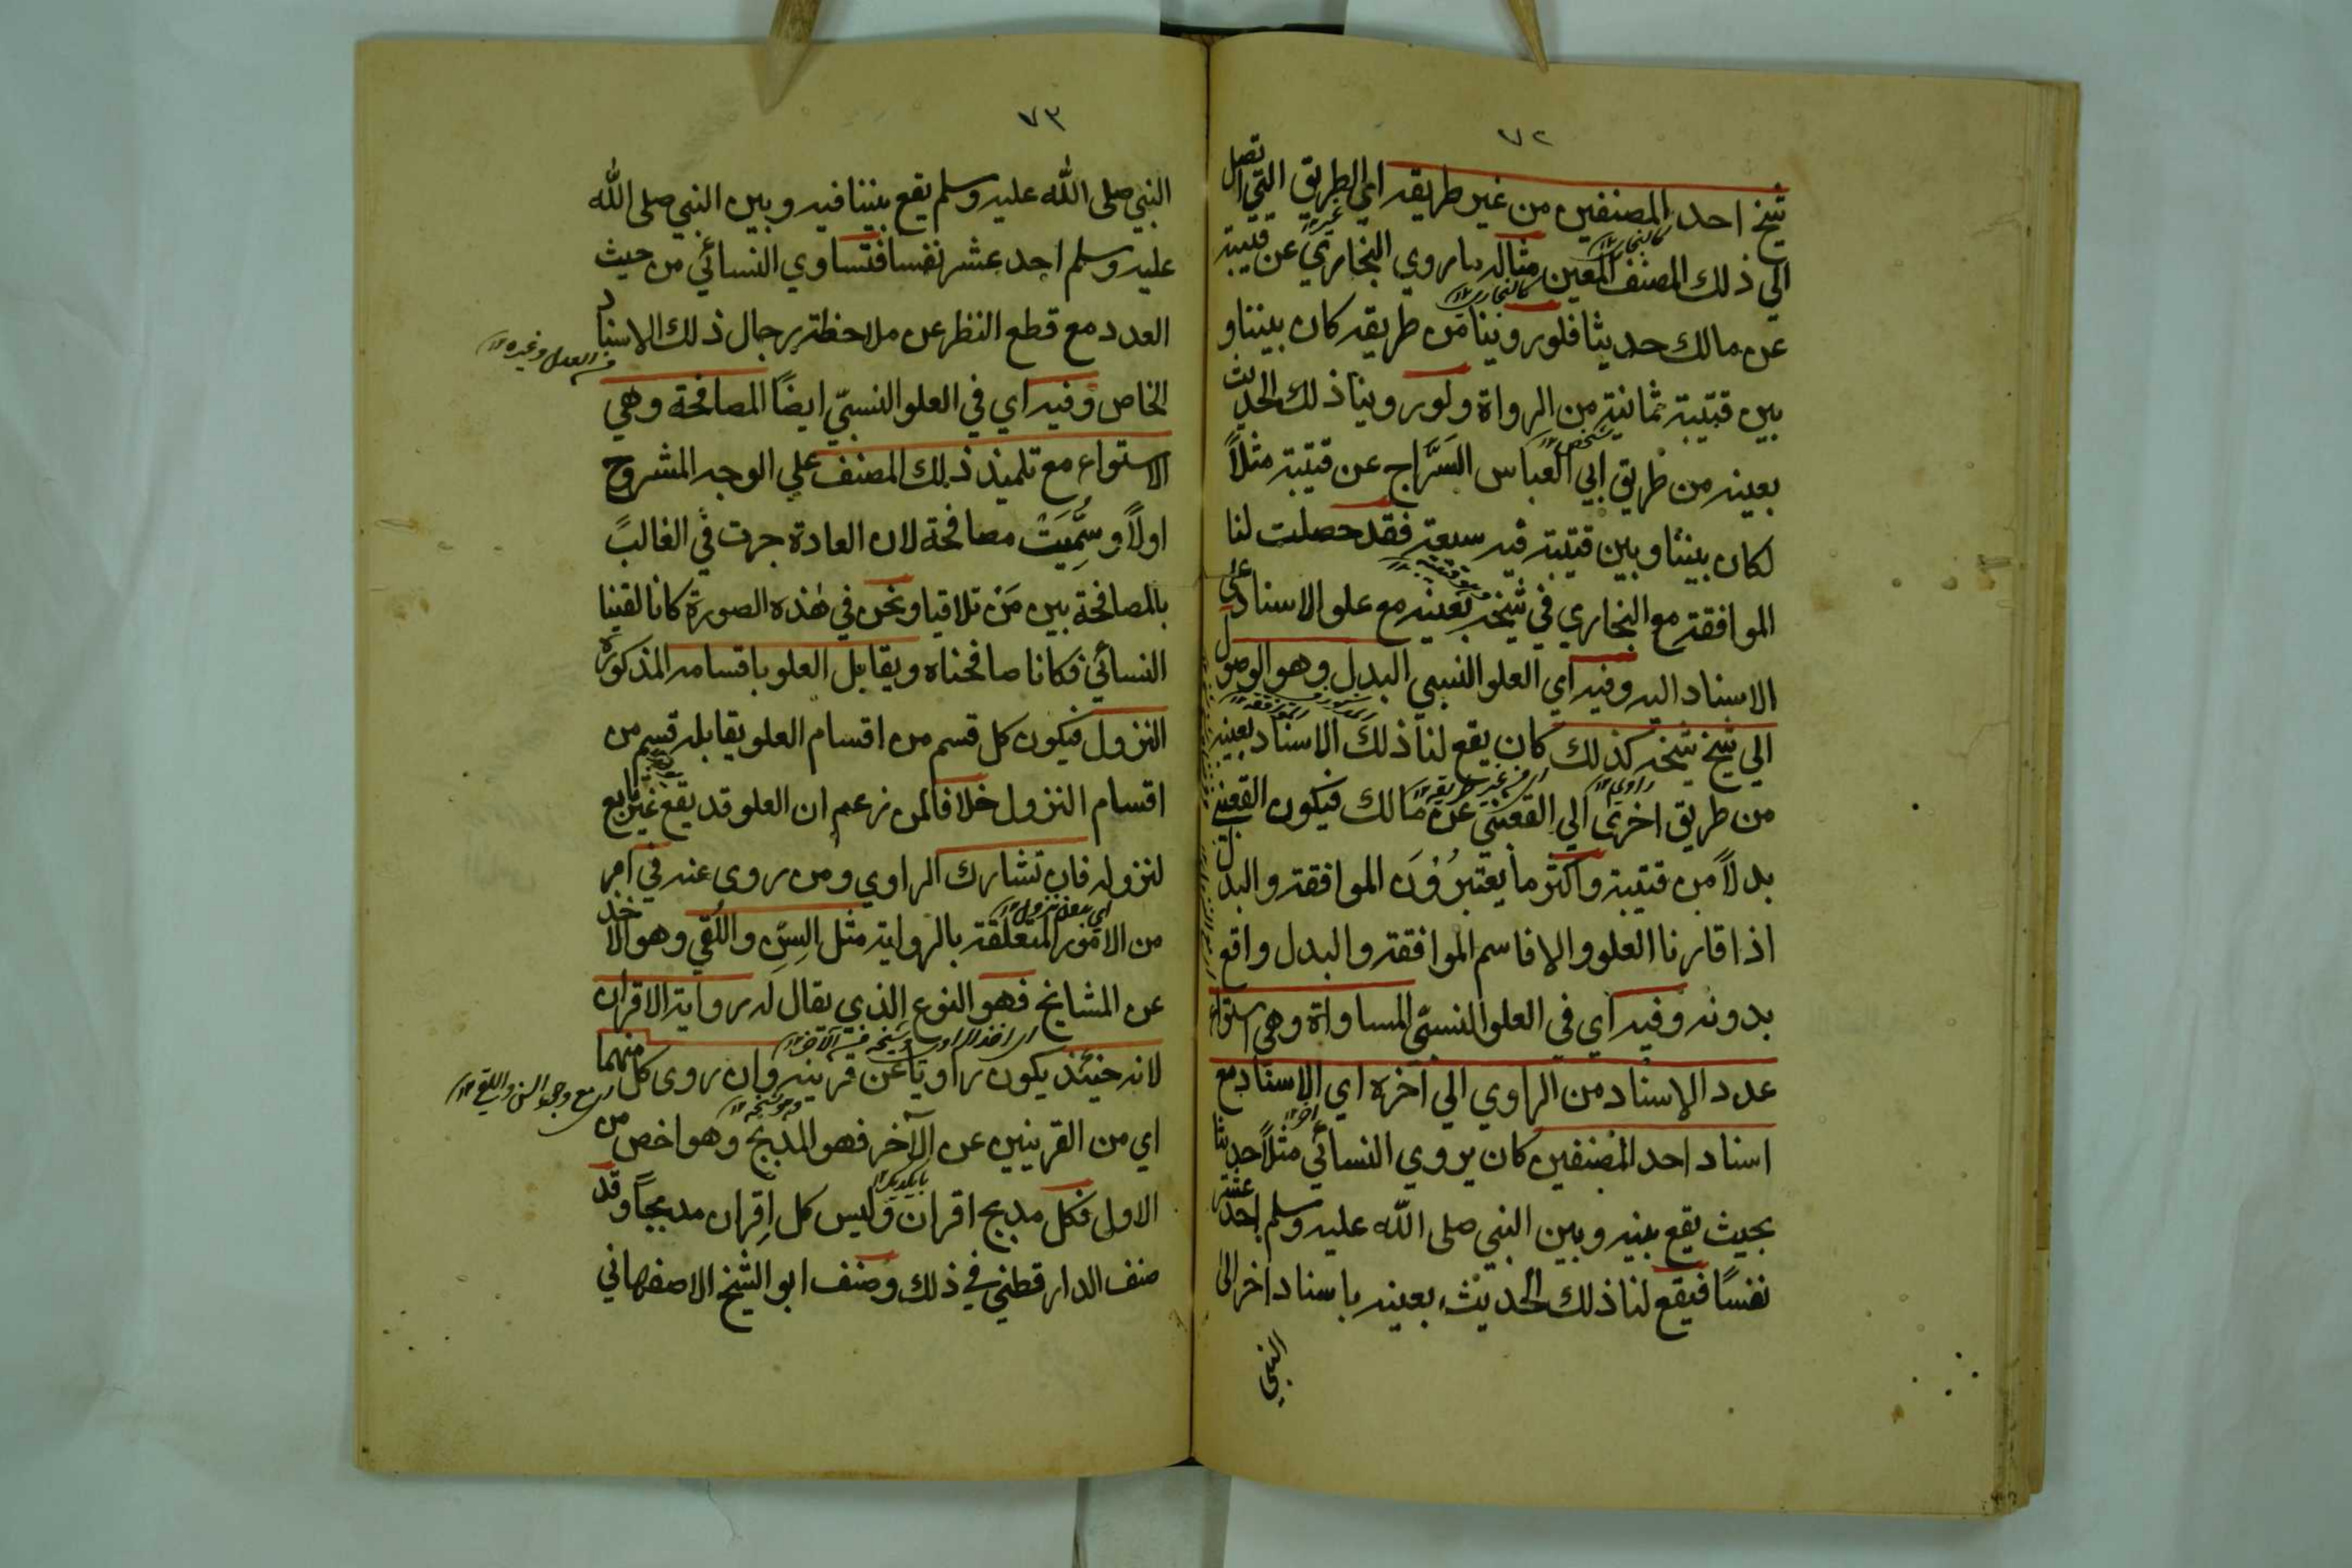 ٧٢
شيخ احد المصنفين من غير طريقه اي الطريق التي تصل
الي ذلك المصنف المعين مثاله ما روي البخاري عن قتيبة
عن مالك حديثا فلو روينا من طريقه كان بيننا و
بين قتيبة ثمانية من الرواة ولو روينا ذلك الحديث
بعينه من طريق ابي العباس السَّرَّاج عن قتيبة مثلاً
لكان بيننا وبين قتيبة فيه سبعة فقد حصلت لنا
الموافقة مع البخاري في شيخه بعينه مع علو الاسناد علي
الاسناد اليه وفيه اي العلو النسبي البدل وهو الوصول
الي شيخ شيخه كذلك كان يقع لنا ذلك الاسناد بعينه
من طريق اخري الي القعنبي عن مالك فيكون القعنبي
بدلاً من قتيبة واكثر ما يعتبرُوْنَ الموافقة والبدل
اذا قارنا العلو والا فاسم الموافقة والبدل واقع
بدونه وفيه اي في العلو النسبي المساواة وهي استواء
عدد الاسناد من الراوي الي آخره اي الاسناد مع
اسناد احد المصنفين كان يروي النسائي مثلاً حديثا
بحيث يقع بينه وبين النبي صلى الله عليه وسلم احد عشر
نفسًا فيقع لنا ذلك الحديث بعينه باسناد اخر الى
النبي
٧٣
النبي صلى الله عليه وسلم يقع بيننا فيه وبين النبي صلى الله
عليه وسلم احد عشر نفسا فنساوي النسائي من حيث
العدد مع قطع النظر عن ملاحظة رجال ذلك الاسناد
الخاص وفيه اي في العلو النسبيّ ايضًا المصافحة وهي
الاستواء مع تلميذ ذلك المصنف علي الوجه المشروح
اولاً وسُمِّيَتْ مصافحة لان العادة جرت في الغالب
بالمصافحة بين مَنْ تلاقيا ونحن في هذه الصورة كانا لقينا
النسائي فكانا صافحناه ويقابل العلو باقسامه المذكورة
النزول فيكون كل قسم من اقسام العلو يقابله قسيم من
اقسام النزول خلافا لمن زعم ان العلو قد يقع غير تابع
لنزوله فان تشارك الراوي ومن روى عنه في امر
من الامور المتعلقة بالرواية مثل السِنّ واللُقي وهو الاخذ
عن المشايخ فهو النوع الذي يقال له رواية الاقران
لانه حينئذ يكون راويا عن قرينه وان روى كل منهما
اي من القرينين عن الآخر فهو المدبج وهو اخص من
الاول فكل مدبج اقران وليس كل اقران مدبجًا وقد
صنف الدارقطني في ذلك وصنف ابو الشيخ الاصفهاني